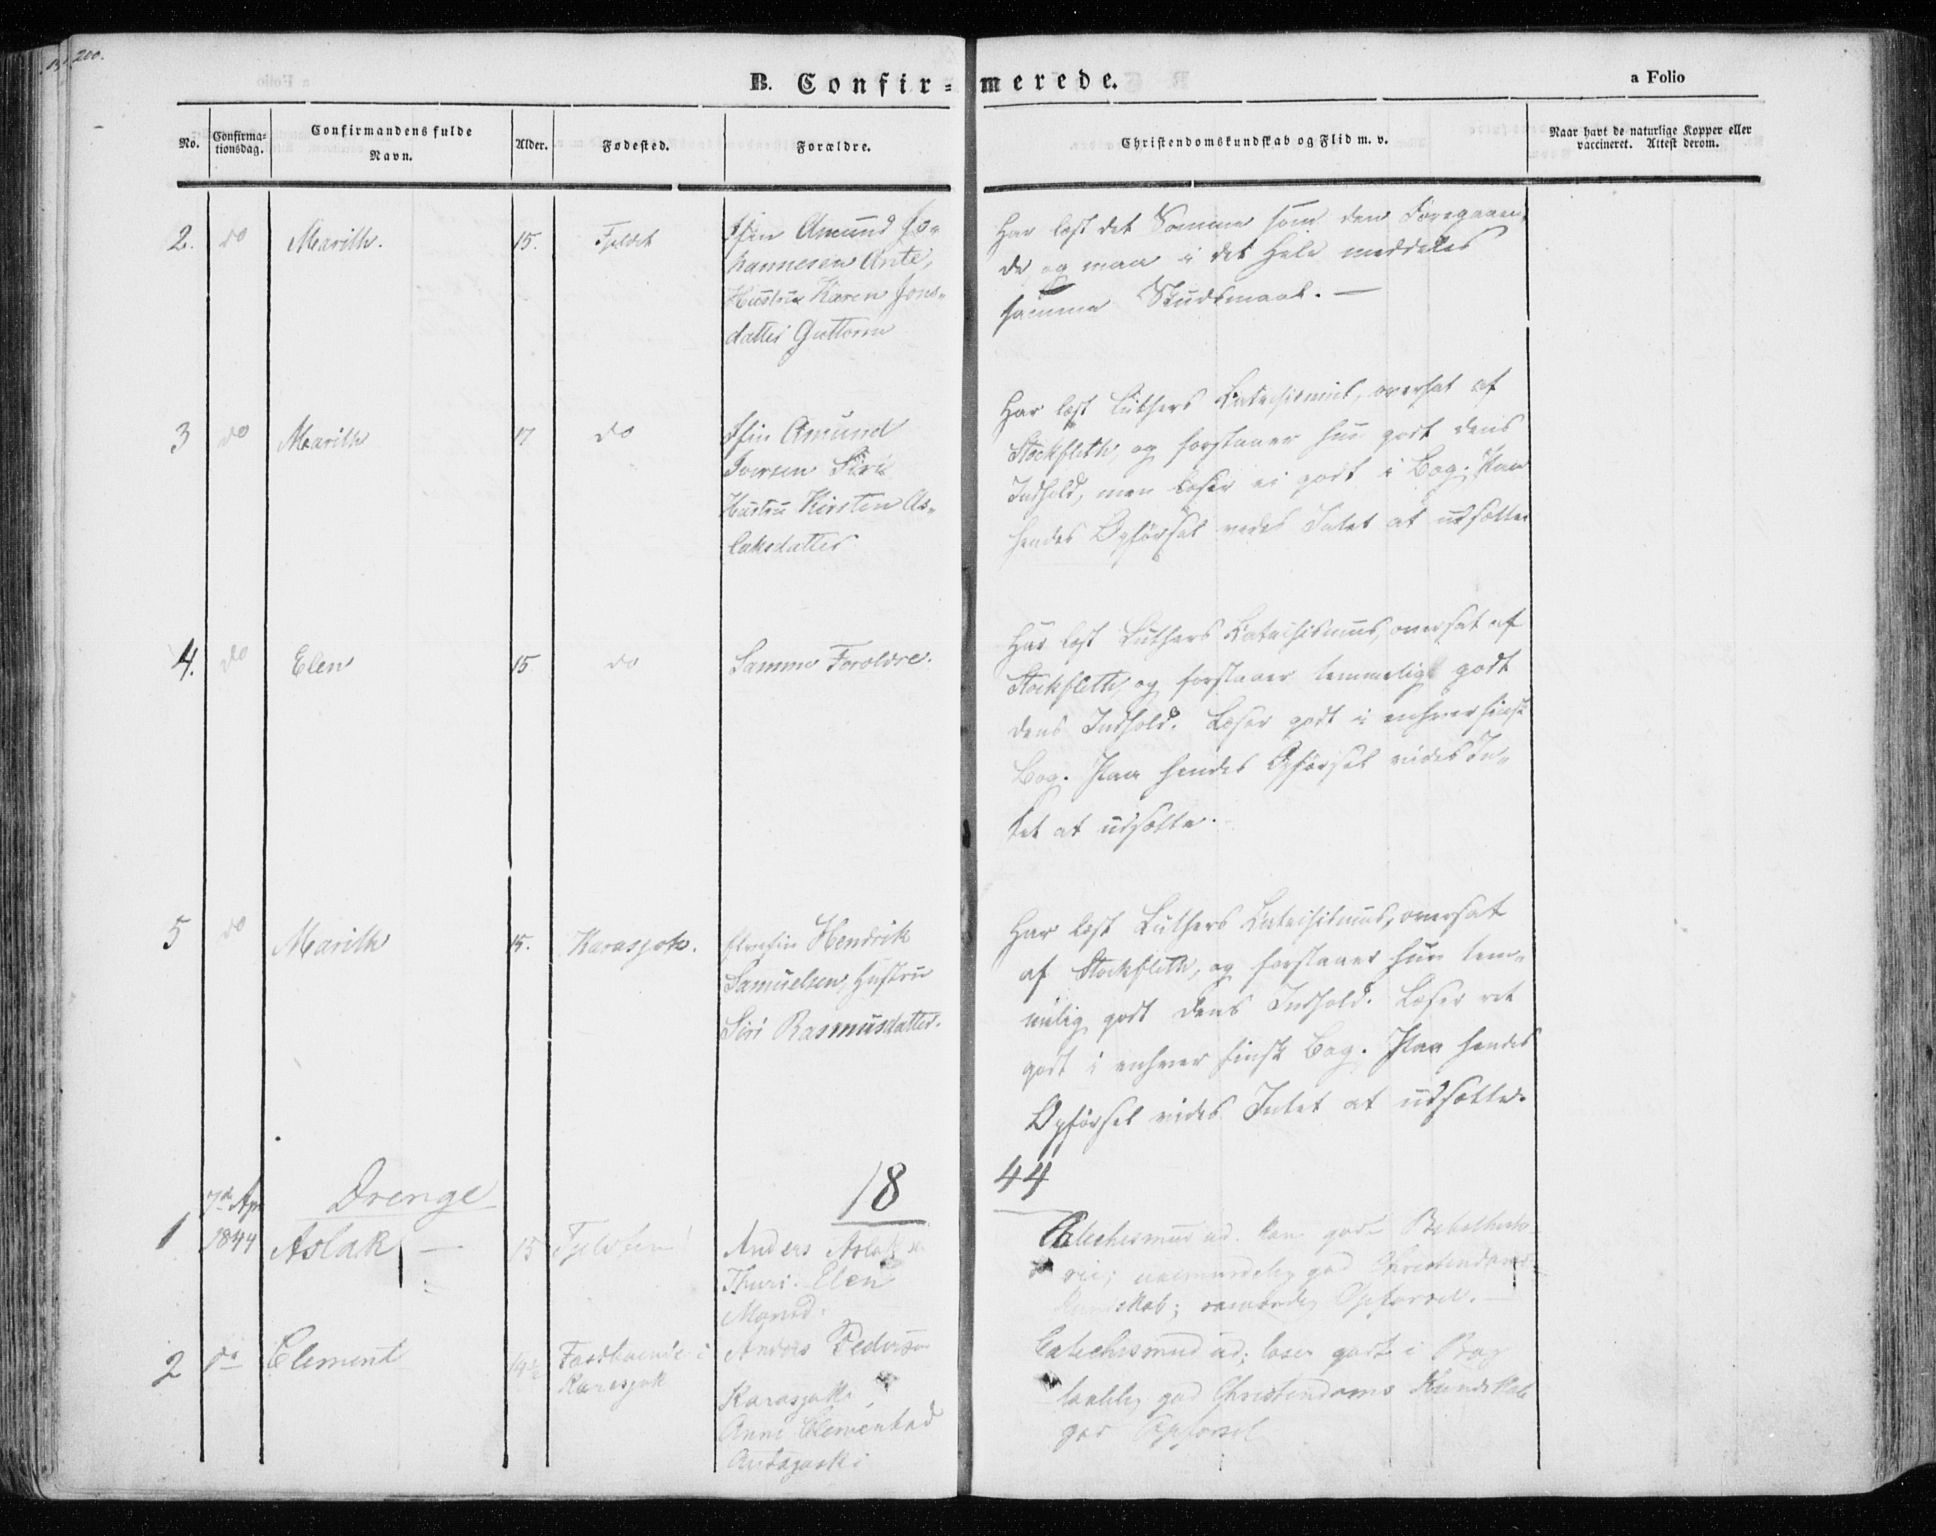 200.
B. Confir=merede.
a Folio
No.
Confirma=
tionsdag.
Confirmandens fulde
Navn.
Alder.
Fødested.
Forældre.
Christendomskundskab og Flid m. v.
Naar havt de naturlige Kopper eller
vaccineret. Attest derom.
2. do Marith. 15. Fjeldet
Amund Jo-
hannesen Anti,
Hustru Karen Jons-
datter Guttorm
Har læst det Samme som den Foregaaen-
de og maa i det Hele meddeles
samme Skudsmaal. —
3 do Marith 17 do
Amund
Iversen Siri
Hustru Kirsten As-
laksdatter
Har læst Luthers Katechismus, oversat af
Stockfleth, og forstaaer hun godt dens
Indhold, men læser ei godt i Bog. Paa
hendes Opførsel vides Intet at udsætte
4. do Elen 15 do
Samme Forældre.
Har læst Luthers Katechismus, oversat af
Stockfleth, og forstaaer temmeligt godt
dens Indhold. Læser godt i enhver finsk
Bog. Paa hendes Opførsel vides In-
tet at udsætte.
5 do Marith 15. Karasjok.
Hendrik
Samuelsen, Hustru
Siri Rasmusdatter.
Har læst Luthers Katechismus, oversat
af Stockfleth, og forstaaer hun tem-
melig godt dens Indhold. Læser ret
godt i enhver finsk Bog. Paa hendes
Opførsel vides Intet at udsætte.
1844
7de Apr
1844
Drenge
1 Aslak — 15
Anders Aslaks.
Thuri. Elen
Catechismus ud.
god Christendoms-
kundskab; Opførsel. —
2 do Clement 14½ Fastboende i
Karasjok
Anders Pedersen
Karasjokki
Anne Clementsd
Catechismus ud; læser godt i Bog
god Christendoms Kundskab
god Opførsel